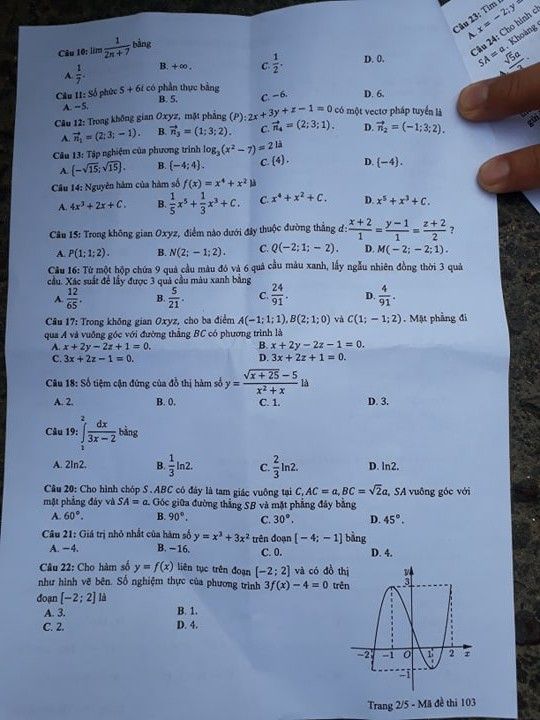 Câu 10: lim 1/(2n + 7) bằng
A. 1/7. B. +∞. C. 1/2. D. 0.
Câu 11: Số phức 5 + 6i có phần thực bằng
A. −5. B. 5. C. −6. D. 6.
Câu 12: Trong không gian Oxyz, mặt phẳng (P): 2x + 3y + z − 1 = 0 có một vectơ pháp tuyến là
A. n⃗₁ = (2; 3; −1). B. n⃗₃ = (1; 3; 2). C. n⃗₄ = (2; 3; 1). D. n⃗₂ = (−1; 3; 2).
Câu 13: Tập nghiệm của phương trình log₃(x² − 7) = 2 là
A. {−√15; √15}. B. {−4; 4}. C. {4}. D. {−4}.
Câu 14: Nguyên hàm của hàm số f(x) = x⁴ + x² là
A. 4x³ + 2x + C. B. 1/5 x⁵ + 1/3 x³ + C. C. x⁴ + x² + C. D. x⁵ + x³ + C.
Câu 15: Trong không gian Oxyz, điểm nào dưới đây thuộc đường thẳng d: (x + 2)/1 = (y − 1)/1 = (z + 2)/2 ?
A. P(1; 1; 2). B. N(2; −1; 2). C. Q(−2; 1; −2). D. M(−2; −2; 1).
Câu 16: Từ một hộp chứa 9 quả cầu màu đỏ và 6 quả cầu màu xanh, lấy ngẫu nhiên đồng thời 3 quả
cầu. Xác suất để lấy được 3 quả cầu màu xanh bằng
A. 12/65. B. 5/21. C. 24/91. D. 4/91.
Câu 17: Trong không gian Oxyz, cho ba điểm A(−1; 1; 1), B(2; 1; 0) và C(1; −1; 2). Mặt phẳng đi
qua A và vuông góc với đường thẳng BC có phương trình là
A. x + 2y − 2z + 1 = 0. B. x + 2y − 2z − 1 = 0.
C. 3x + 2z − 1 = 0. D. 3x + 2z + 1 = 0.
Câu 18: Số tiệm cận đứng của đồ thị hàm số y = (√(x + 25) − 5)/(x² + x) là
A. 2. B. 0. C. 1. D. 3.
Câu 19: ∫₁² dx/(3x − 2) bằng
A. 2ln2. B. 1/3 ln2. C. 2/3 ln2. D. ln2.
Câu 20: Cho hình chóp S.ABC có đáy là tam giác vuông tại C, AC = a, BC = √2a, SA vuông góc với
mặt phẳng đáy và SA = a. Góc giữa đường thẳng SB và mặt phẳng đáy bằng
A. 60°. B. 90°. C. 30°. D. 45°.
Câu 21: Giá trị nhỏ nhất của hàm số y = x³ + 3x² trên đoạn [−4; −1] bằng
A. −4. B. −16. C. 0. D. 4.
Câu 22: Cho hàm số y = f(x) liên tục trên đoạn [−2; 2] và có đồ thị
như hình vẽ bên. Số nghiệm thực của phương trình 3f(x) − 4 = 0 trên
đoạn [−2; 2] là
A. 3. B. 1.
C. 2. D. 4.
y
3
−2 −1 O 1 2 x
−1
Trang 2/5 - Mã đề thi 103
Câu 23: Tìm
A. x = −2; y =
Câu 24: Cho hình ch
SA = a. Khoảng
√5a